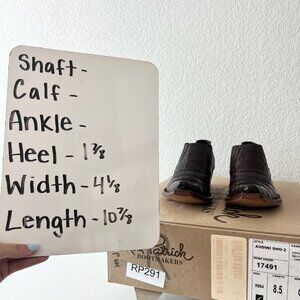 Shaft -
Calf -
Ankle -
Heel - 1 7/8
Width - 4 1/8
Length - 10 7/8
BOOTMAKERS
RP291
STYLE
AUDINI SHO-2
17491
8.5